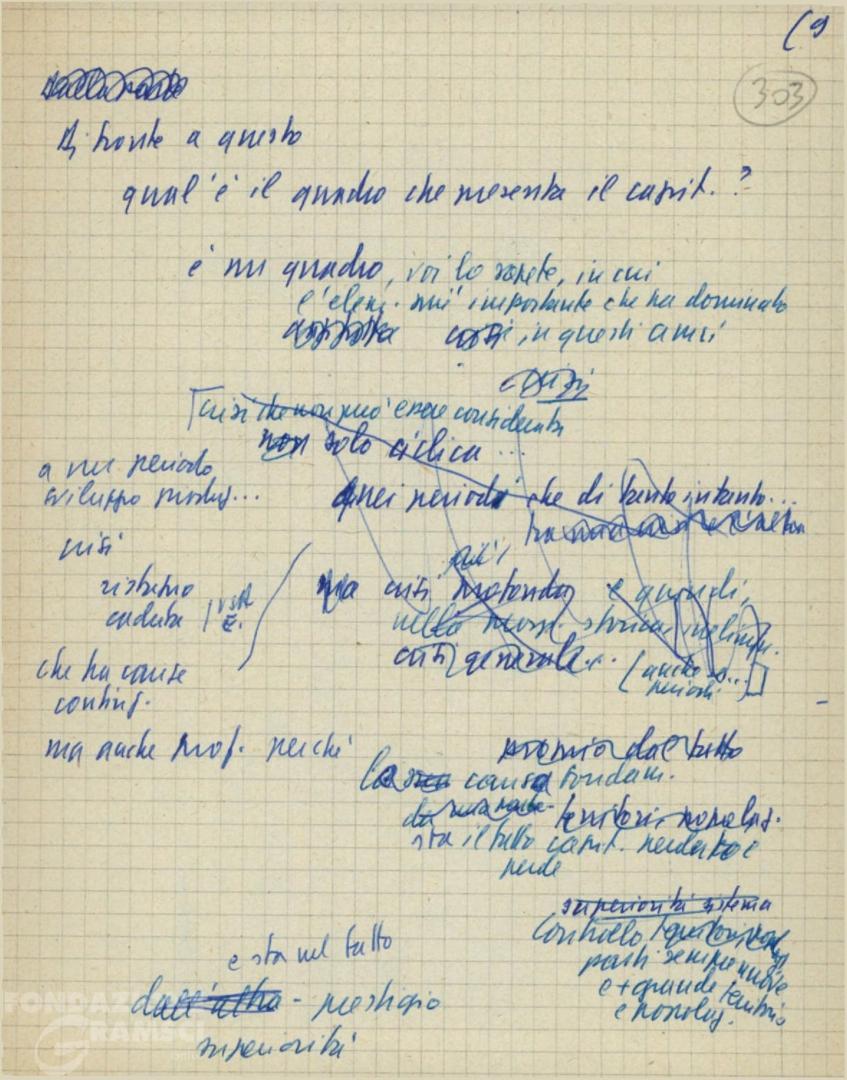 (9
303
Di fronte a questo
qual'è il quadro che presenta il capit. ?
è un quadro, voi lo sapete, in cui
l'elem. più importante che ha dominato
in questi anni
crisi
crisi che non può essere considerata
non solo ciclica ...
a un periodo
sviluppo produz...
quei periodi che di tanto in tanto...
crisi
più
ristagno
ma crisi profonda e quindi,
caduta
nella storica, inelimin.
crisi generale...
(anche
periodi
che ha cause
conting.
ma anche prof. perché
dal fatto
la causa fondam.
da una parte territori, popolaz.
sta il fatto capit. perduto e
perde
superiorità sistema
controllo
e sta nel fatto
parti sempre nuove
e + grande territorio
dall'altra - prestigio
e popolaz.
superiorità
FONDAZIONE
GRAMSCI